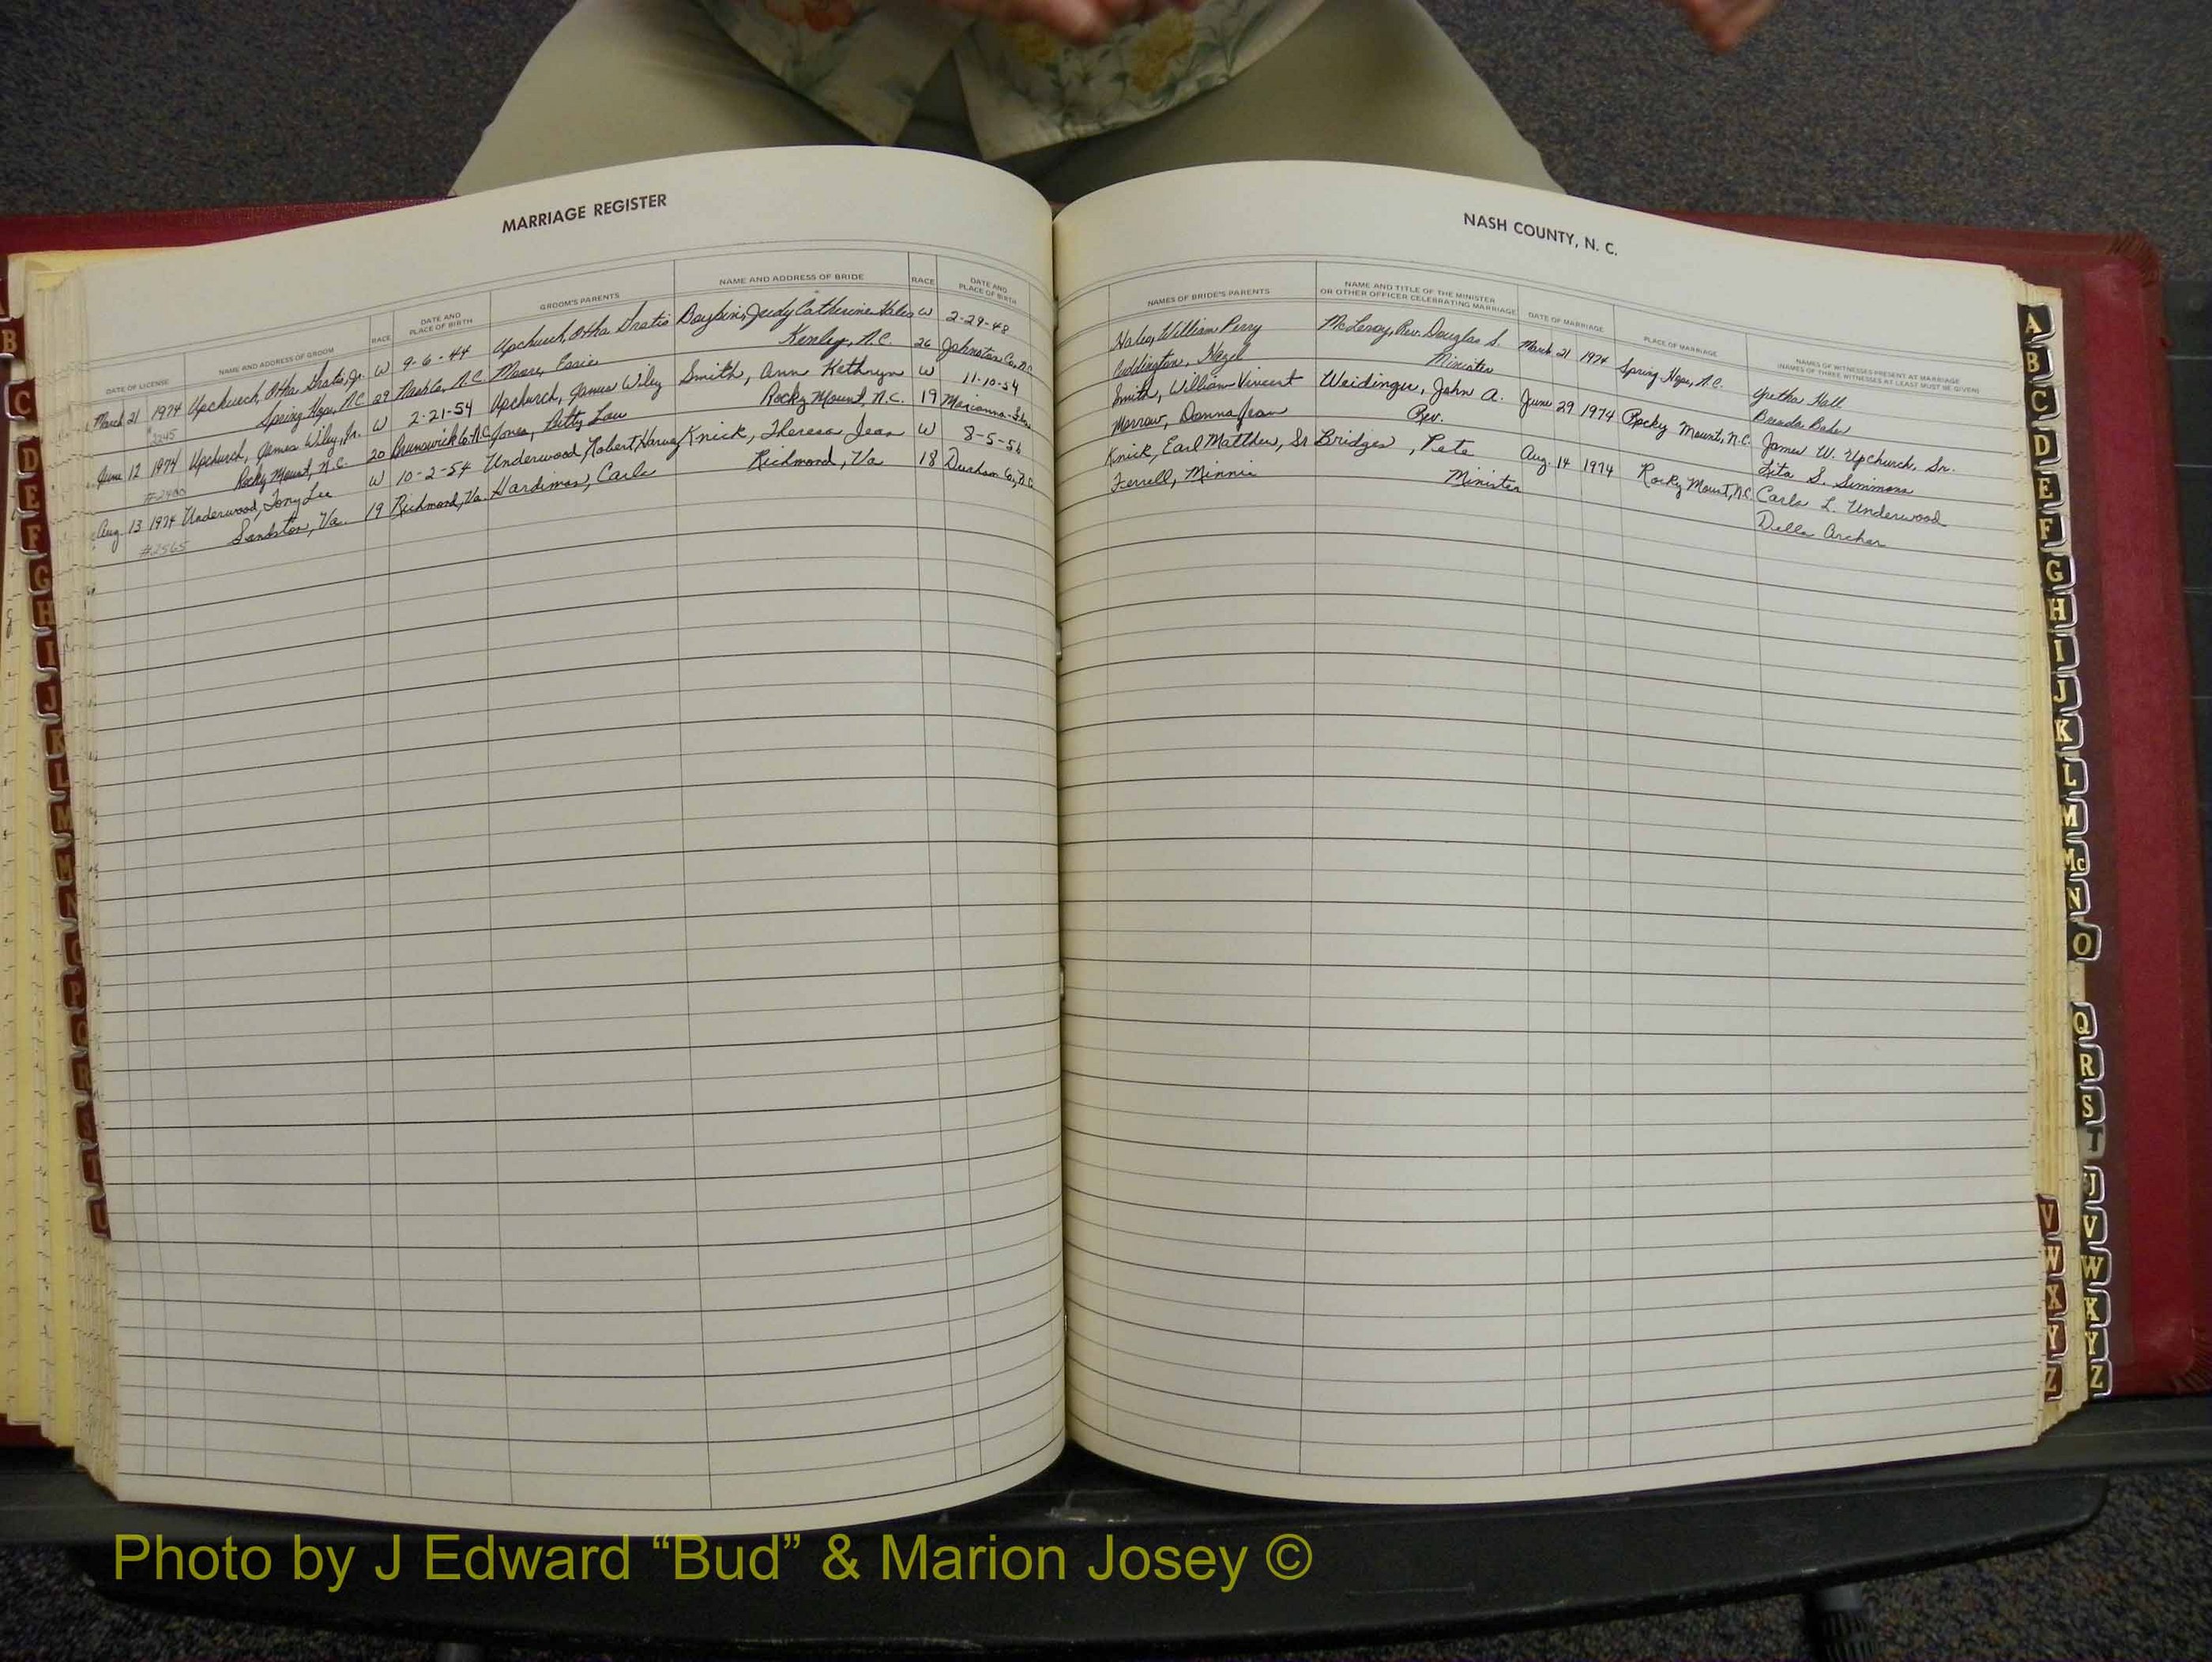 MARRIAGE REGISTER
DATE OF LICENSE NAME AND ADDRESS OF GROOM RACE DATE AND PLACE OF BIRTH GROOM'S PARENTS NAME AND ADDRESS OF BRIDE RACE DATE AND PLACE OF BIRTH
March 21 1974 Upchurch, Otha Jr. W 9-6-44 Upchurch, Otha Judy Catherine Hales W 2-29-48
Spring Hope, N.C. 29 Nash Co., N.C. Moore, Essie Kenly, N.C. 26 Johnston Co., N.C.
June 12 1974 Upchurch, James Wiley, Jr. W 2-21-54 Upchurch, James Wiley Smith, Ann Kathryn W 11-10-54
Rocky Mount, N.C. 20 Brunswick Co. N.C. Jones, Betty Lou Rocky Mount, N.C. 19
Aug. 13 1974 Underwood, Tony Lee W 10-2-54 Underwood, Robert Harvey Knick, Theresa Jean W 8-5-56
#2565 Sandston, Va. 19 Richmond, Va. Hardiman, Carla Richmond, Va 18 Durham Co., N.C.
NASH COUNTY, N. C.
NAMES OF BRIDE'S PARENTS NAME AND TITLE OF THE MINISTER OR OTHER OFFICER CELEBRATING MARRIAGE DATE OF MARRIAGE PLACE OF MARRIAGE NAMES OF WITNESSES PRESENT AT MARRIAGE (NAMES OF THREE WITNESSES AT LEAST MUST BE GIVEN)
Hales, William Perry McLeroy, Rev. Douglas S. March 21 1974 Spring Hope, N.C. Hall
Cuddington, Hazel Minister Brenda Baker
Smith, William Vincent Weidinger, John A. June 29 1974 Rocky Mount, N.C. James W. Upchurch, Sr.
Morrow, Donna Jean Rev. S. Simmons
Knick, Earl Matthew, Sr. Bridges, Pete Aug. 14 1974 Rocky Mount, N.C. Carla L. Underwood
Ferrell, Minnie Minister Della Archer
B
C
D
E
F
G
H
I
J
K
L
M
Mc
N
O
P
Q
R
S
T
U
A
B
C
D
E
F
G
H
I
J
K
L
M
Mc
N
O
Q
R
S
T
U
V
W
X
Y
Z
V
W
X
Y
Z
Photo by J Edward “Bud” & Marion Josey ©